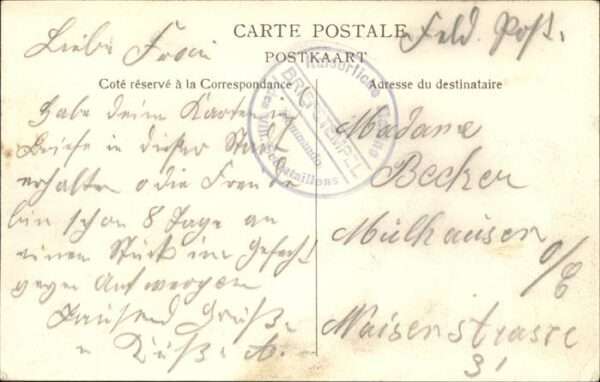 CARTE POSTALE
POSTKAART
Feld. Post.
Coté réservé à la Correspondance
Adresse du destinataire
Liebe
Habe deine Karten u
Briefe in dieser Stadt
erhalten o die Freude
bin schon 8 Tage an
einem Stück im Gefecht
gegen Antwerpen
Tausend Grüße
u Küße. A.
Madame
Becker
Mülhausen
o/E
Waisenstrasse
31
BRIEFSTEMPEL
Kaiserliche Marine
Kommando
Bataillons